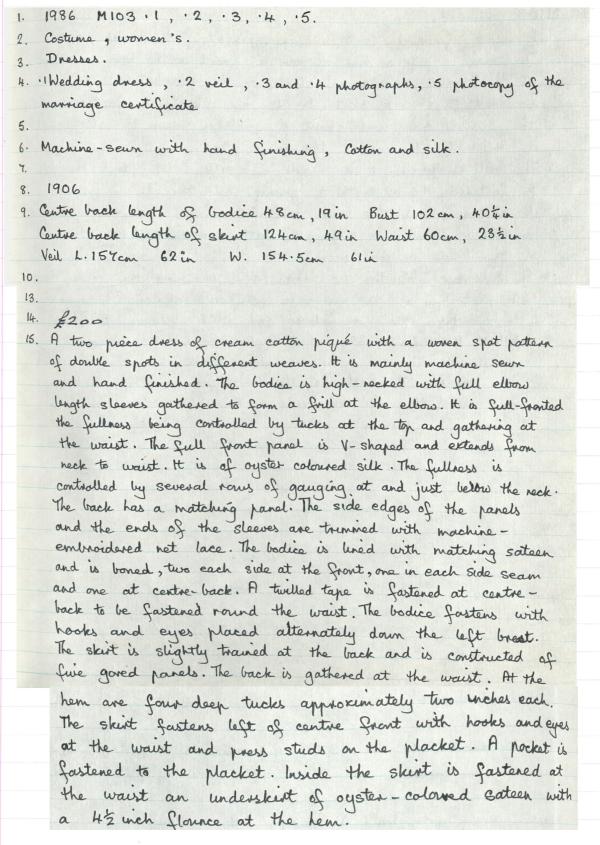 1. 1986 M103 .1, .2, .3, .4, .5.
2. Costume, women's.
3. Dresses.
4. .1 Wedding dress, .2 veil, .3 and .4 photographs, .5 photocopy of the
marriage certificate
5.
6. Machine-sewn with hand finishing, Cotton and silk.
7.
8. 1906
9. Centre back length of bodice 48cm, 19in Bust 102cm, 40¼in
Centre back length of skirt 124cm, 49in Waist 60cm, 23½in
Veil L. 157cm 62in W. 154.5cm 61in
10.
13.
14. £200
15. A two piece dress of cream cotton piqué with a woven spot pattern
of double spots in different weaves. It is mainly machine sewn
and hand finished. The bodice is high-necked with full elbow
length sleeves gathered to form a frill at the elbow. It is full-fronted
the fullness being controlled by tucks at the top and gathering at
the waist. The full front panel is V-shaped and extends from
neck to waist. It is of oyster coloured silk. The fullness is
controlled by several rows of gauging at and just below the neck.
The back has a matching panel. The side edges of the panels
and the ends of the sleeves are trimmed with machine-
embroidered net lace. The bodice is lined with matching sateen
and is boned, two each side at the front, one in each side seam
and one at centre-back. A twilled tape is fastened at centre-
back to be fastened round the waist. The bodice fastens with
hooks and eyes placed alternately down the left breast.
The skirt is slightly trained at the back and is constructed of
five gored panels. The back is gathered at the waist. At the
hem are four deep tucks approximately two inches each.
The skirt fastens left of centre front with hooks and eyes
at the waist and press studs on the placket. A pocket is
fastened to the placket. Inside the skirt is fastened at
the waist an underskirt of oyster-coloured sateen with
a 4½ inch flounce at the hem.